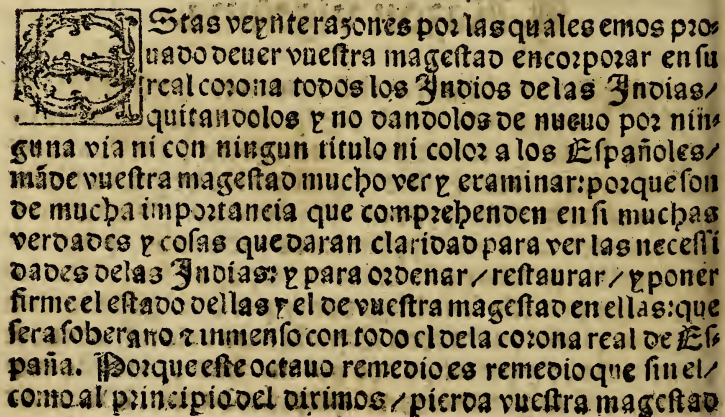 EStas veynte razones por las quales emos pro-
uado deuer vuestra magestad encorporar en su
real corona todos los Indios delas Indias/
quitandolos y no dandolos de nueuo por nin-
guna via ni con ningun titulo ni color a los Españoles/
mãde vuestra magestad mucho ver y examinar: porque son
de mucha importancia que comprehenden en si muchas
verdades y cosas que daran claridad para ver las necessi
dades delas Indias: y para ordenar/ restaurar/ y poner
firme el estado dellas y el de vuestra magestad en ellas: que
sera soberano ⁊ inmenso con todo el dela corona real de Es-
paña. Porque este octauo remedio es remedio que sin el/
como al principio del diximos/ pierda vuestra magestad